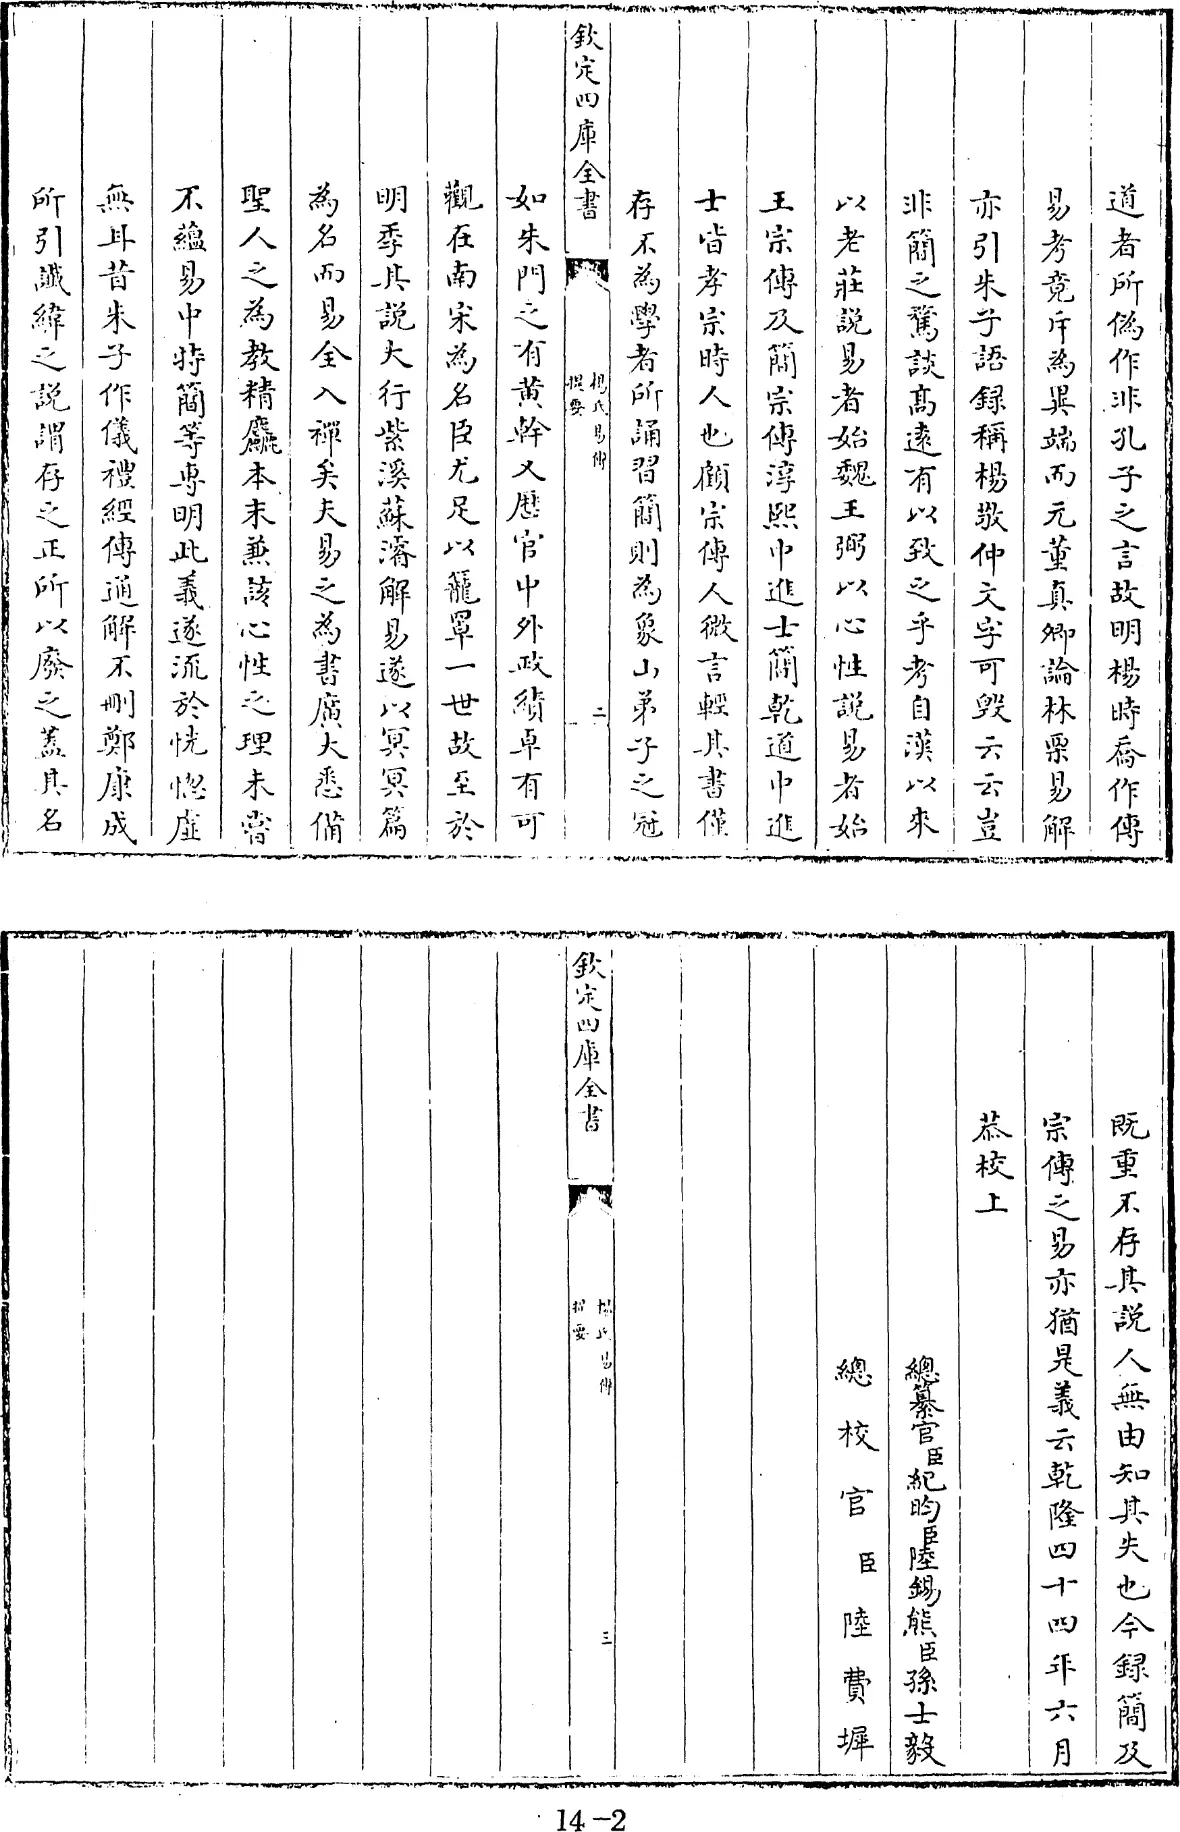 道者所偽作非孔子之言故明楊時喬作傳
易考竟斥為異端而元董真卿論林栗易解
亦引朱子語録稱楊敬仲文字可毀云云豈
非簡之驁談髙逺有以致之乎考自漢以來
以老莊説易者始魏王弼以心性説易者始
王宗傳及簡宗傳淳熙中進士簡乾道中進
士皆孝宗時人也顧宗傳人微言輕其書僅
存不為學者所誦習簡則為象山弟子之冠
欽定四庫全書
楊氏易傳
提要
二
如朱門之有黄幹又歴官中外政績卓有可
觀在南宋為名臣尤足以籠罩一世故至於
明季其説大行紫溪蘇濬解易遂以冥冥篇
為名而易全入禪矣夫易之為書廣大悉備
聖人之為教精麤本末兼該心性之理未嘗
不藴易中特簡等専明此義遂流於恍惚虚
無耳昔朱子作儀禮經傳通解不刪鄭康成
所引讖緯之説謂存之正所以廢之蓋其名
既重不存其説人無由知其失也今録簡及
宗傳之易亦猶是義云乾隆四十四年六月
恭校上
總纂官臣紀昀臣陸錫熊臣孫士毅
總校官臣陸費墀
欽定四庫全書
楊氏易傳
提要
三
14-2